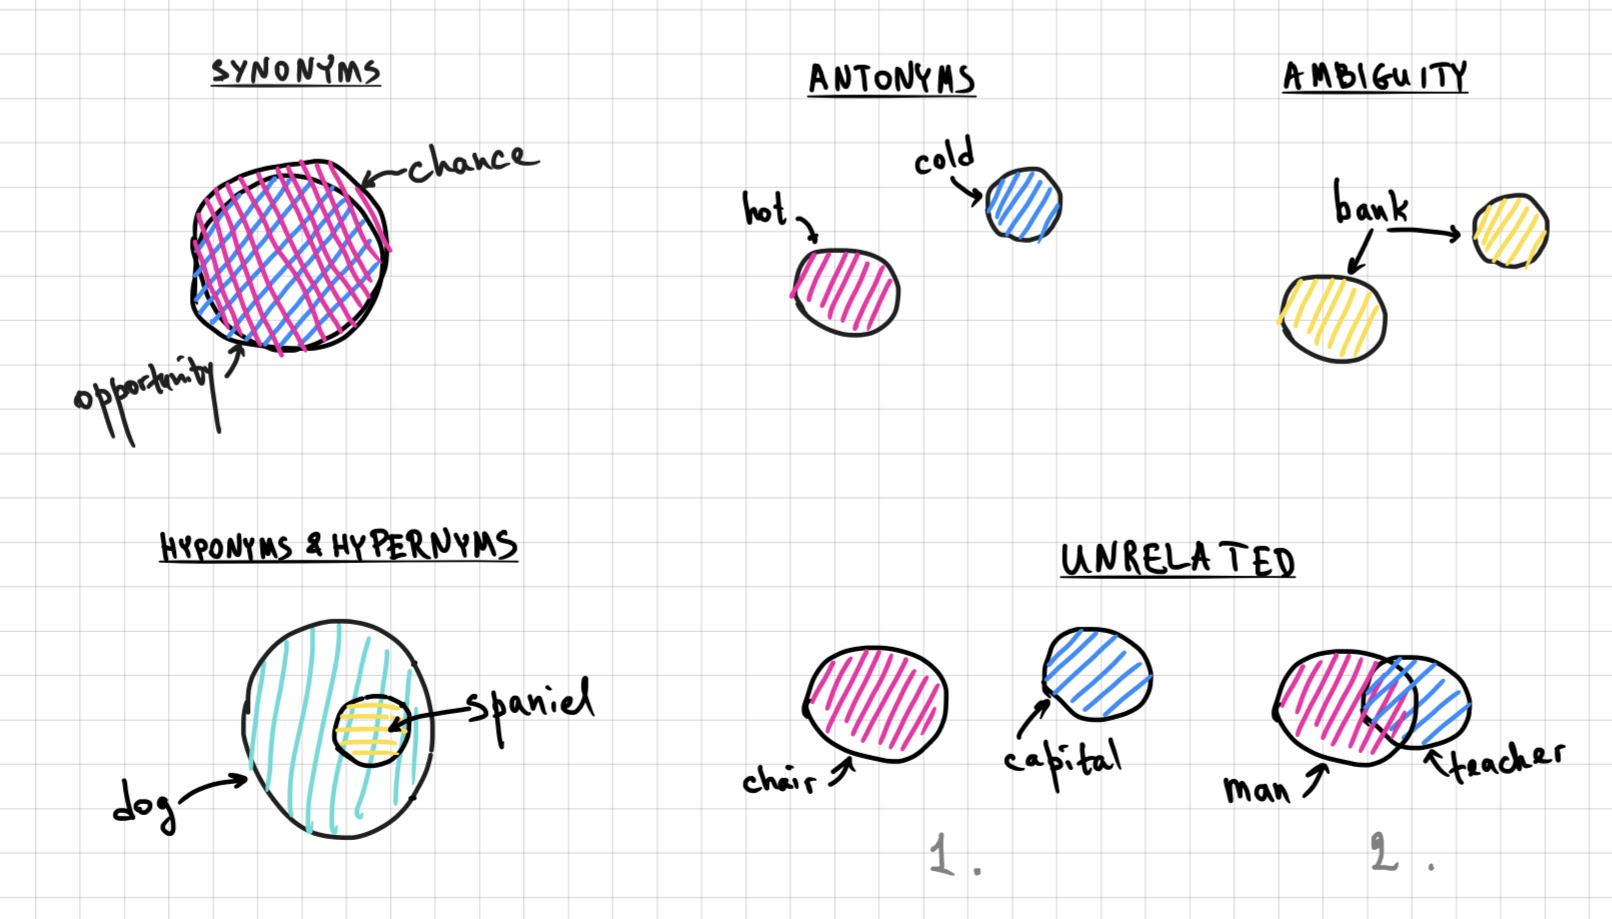 SYNONYMS
chance
opportunity
ANTONYMS
cold
hot
AMBIGUITY
bank
HYPONYMS & HYPERNYMS
spaniel
dog
UNRELATED
chair
capital
man
teacher
1.
2.